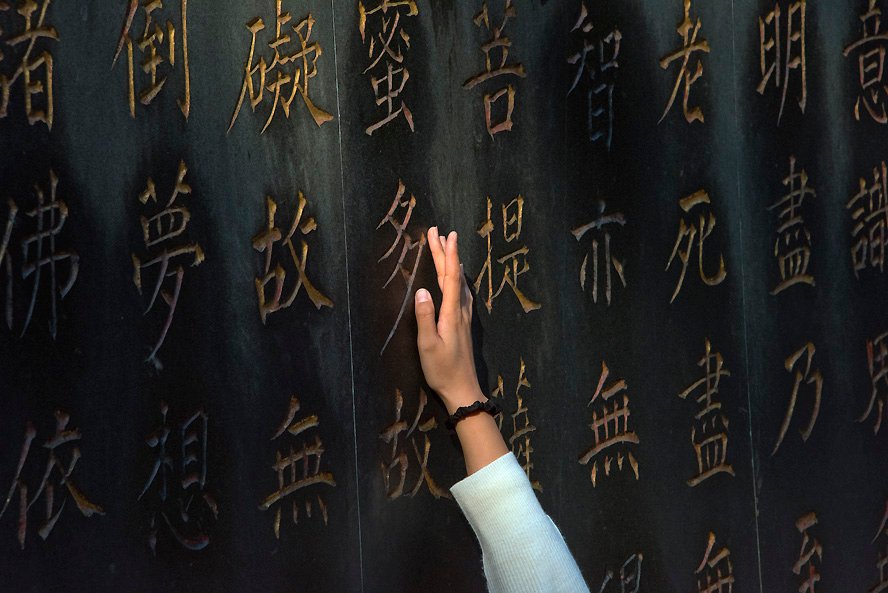 意識界
明盡乃至
老死盡無
智亦無得
菩提薩
蜜多故
礙故無
倒夢想
諸佛依